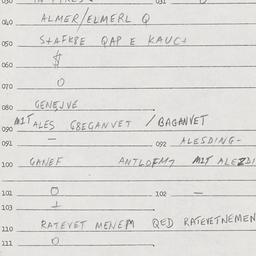 040 ALMER/ELMERL Q
050 STAFKBE QAP E KAUCT
060 $
070 O
080 GENEJVE
090 MIT ALES GBEGANVET / BAGANVET
091 — 092 ALESDING-
100 GANEF ANTLOFM7 MIT ALEZDI
101 O 102 —
103 1
110 RATEVET MENEM QED RATEVETNEMEN
111 O